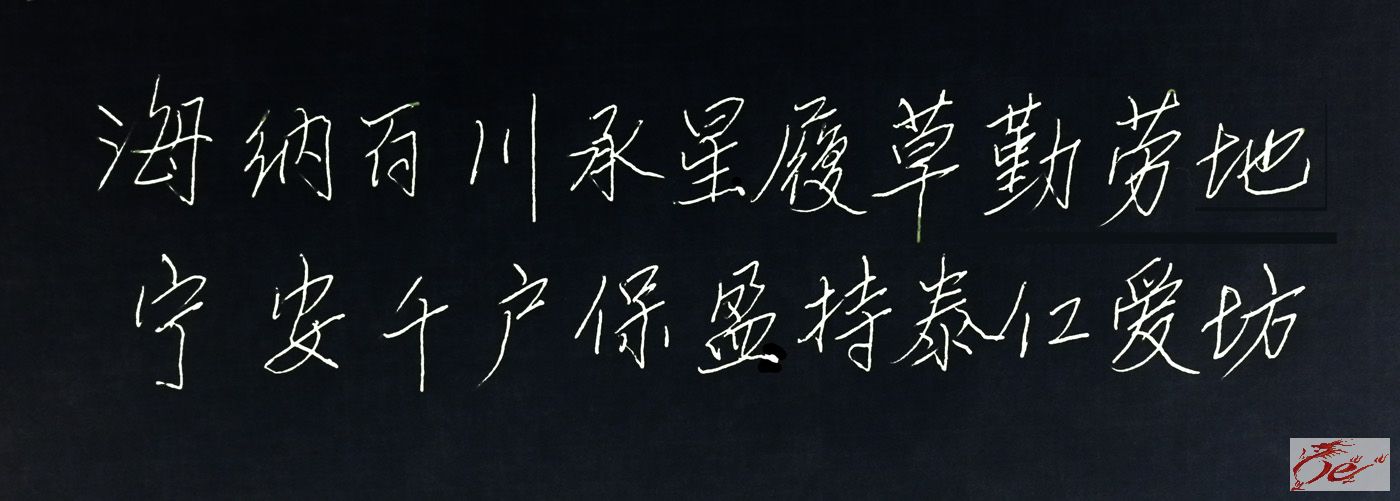 海纳百川承星履草勤劳地
宁安千户保盈持泰仁爱坊